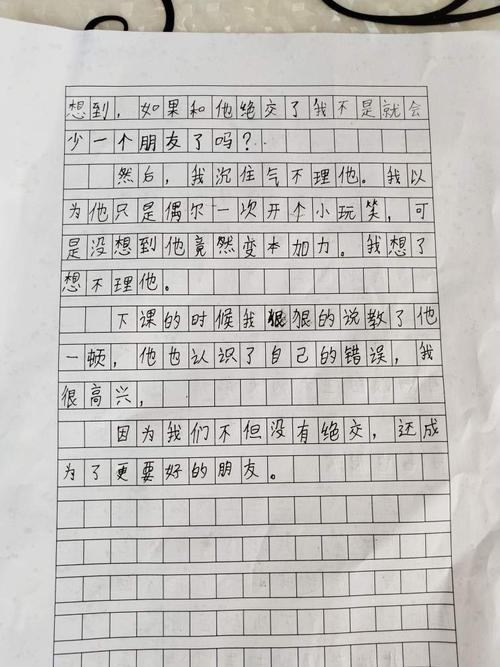 想到，如果和他绝交了我不是就会
少一个朋友了吗？
然后，我沉住气不理他。我以
为他只是偶尔一次开个小玩笑，可
是没想到他竟然变本加力。我想了
想不理他。
下课的时候我狠狠的说教了他
一顿，他也认识了自己的错误，我
很高兴，
因为我们不但没有绝交，还成
为了更要好的朋友。